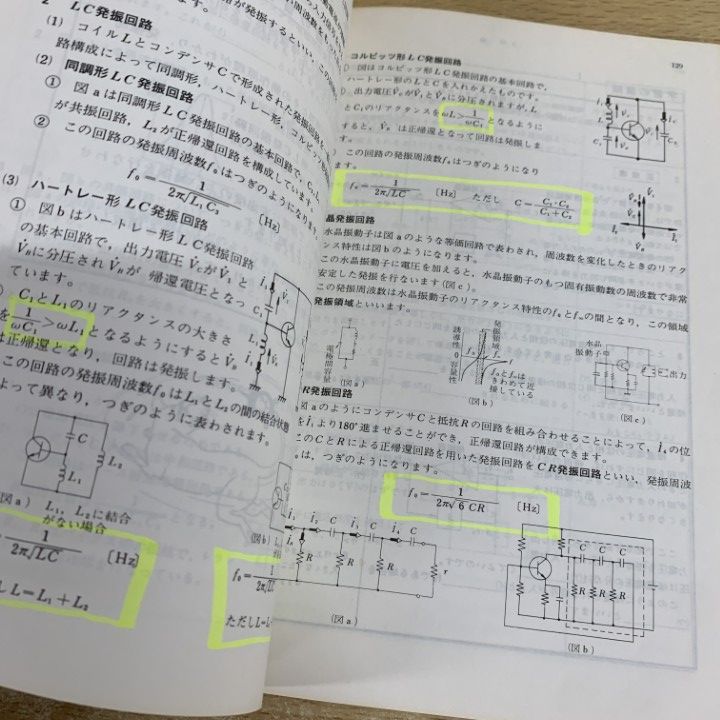 2 LC発振回路
(1) コイルLとコンデンサCで形成された発振回路を
路構成によって同調形，ハートレー形，コルピッツ
(2) 同調形LC発振回路
① 図aは同調形LC発振回路の基本回路で，C₂，L₁
が共振回路，L₂が正帰還回路を構成しています。
② この回路の発振周波数f₀はつぎのようになりま
f₀=1/2π√L₁C₂ 〔Hz〕
(3) ハートレー形LC発振回路
① 図bはハートレー形LC発振回路
の基本回路で，出力電圧V̇cがV̇Lと
V̇Bに分圧されV̇Bが 帰還電圧となっ
ています。
C₁とL₁のリアクタンスの大きさ
を1/ωC₁>ωL₁となるようにするとV̇B
は正帰還となり，回路は発振します。
この回路の発振周波数f₀はL₁とL₂の間の結合状態
よって異なり，つぎのように表わされます。
C
L₁
L₂
(図a) L₁，L₂に結合
がない場合
1/2π√LC 〔Hz〕
L=L₁+L₂
(図b)
f₀=1/2π√LC
ただしL=L
129
コルピッツ形LC発振回路
図はコルピッツ形LC発振回路の基本回路で，
ハートレー形のLとCを入れかえたものです。
出力電圧V̇cがV̇LとV̇Bに分圧されますが，L
とC₁のリアクタンスをωL>1/ωC₁となるように
すると，V̇Bは正帰還となって回路は発振しま
す。
この回路の発振周波数f₀はつぎのようになり
ます。
f₀=1/2π√LC 〔Hz〕 ただし C=C₁・C₂/C₁+C₂
晶発振回路
水晶振動子は図aのような等価回路で表わされ，周波数を変化したときのリアク
タンス特性は図bのようになります。
この水晶振動子に電圧を加えると，水晶振動子のもつ固有振動数の周波数で非常
安定した発振を行ないます(図c)。
この発振周波数は水晶振動子のリアクタンス特性のf₀とf∞の間となり，この領域
発振領域といいます。
電極間容量
(図a)
誘導性 0 容量性
発振領域
f₀とf∞は
きわめて近
接している
(図b)
水晶
振動子
出力
(図c)
R発振回路
図aのようにコンデンサCと抵抗Rの回路を組み合わせることによって，i₄の位
をi₁より180°進ませることができ，正帰還回路が構成できます。
このCとRによる正帰還回路を用いた発振回路をCR発振回路といい，発振周波
f₀は，つぎのようになります。
f₀=1/2π√6 CR 〔Hz〕
C C C
R R R r
(図a)
C C C
R R R
(図b)